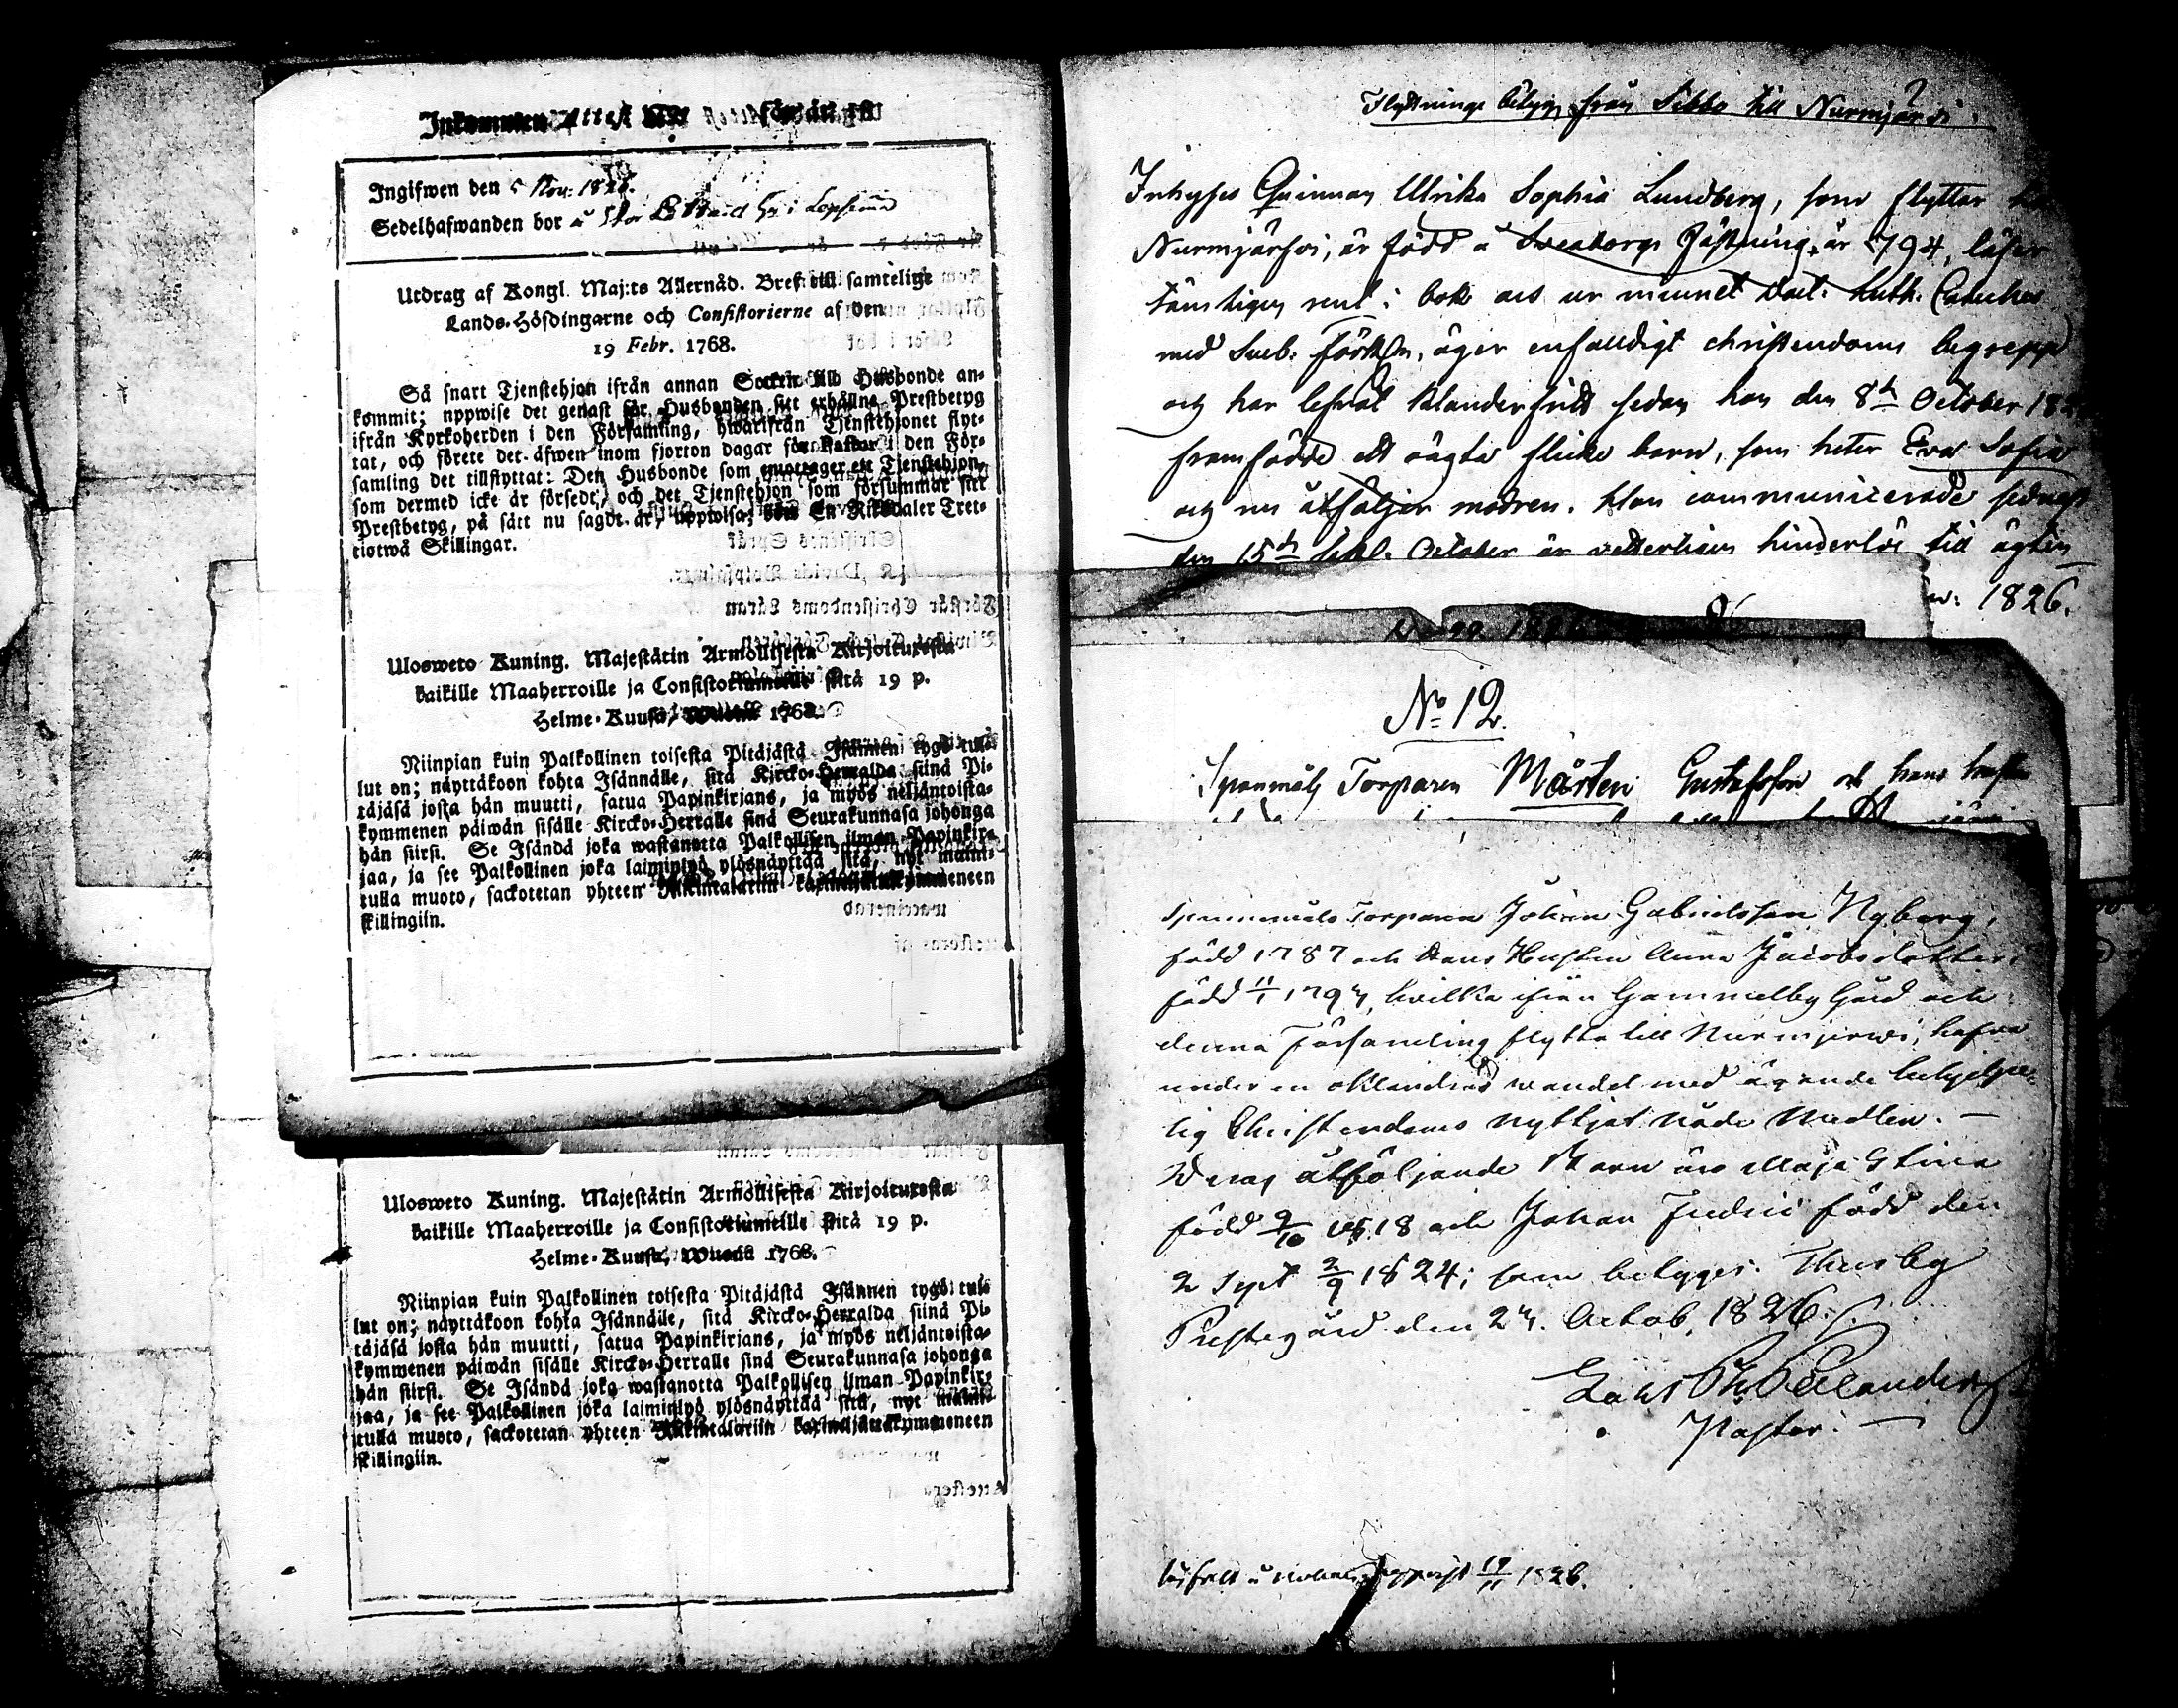 Ingifwen den 5 Nov: 1826.
Sedelhafwanden bor å
Utdrag af Kongl. Maj:ts Allernåd. Bref till samtelige
Lands-Höfdingarne och Consistorierne af den
19 Febr. 1768.
Så snart Tjenstehjon ifrån annan Socken till Husbonde an-
kommit; uppwise det genast för Husbonden sitt erhållne Prestbetyg
ifrån Kyrkoherden i den Församling, hwarifrån Tjenstehjonet flyt-
tat, och förete det äfwen inom fjorton dagar för Pastor i den För-
samling det tillflyttat: Den Husbonde som emottager ett Tjenstehjon,
som dermed icke är försedt, och det Tjenstehjon som försummar sitt
Prestbetyg, på sätt nu sagdt är, uppwisa, böte En Riksdaler Tret-
tiotwå Skillingar.
Ulosweto Kuning. Majestätin Armollisesta Kirjoituxesta
kaikille Maaherroille ja Consistoriumeille siitä 19 p.
Helme-Kuusa, Wuonna 1768.
Niinpian kuin Palkollinen toisesta Pitäjästä Isännen tygö tul-
lut on; näyttäkoon kohta Isännälle, sitä Kircko-Herralda siinä Pi-
täjäsä josta hän muutti, satua Papinkirjans, ja myös neljäntoista-
kymmenen päiwän sisälle Kircko-Herralle siinä Seurakunnasa johonga
hän siirsi. Se Isändä joka wastanotta Palkollisen ilman Papinkir-
jaa, ja see Palkollinen joka laiminlyö ylösnäyttää sitä, nyt mainit-
tulla muoto, sackotetan yhteen Rikintalariin kaxineljättäkymmeneen
skillingiin.
Ulosweto Kuning. Majestätin Armollisesta Kirjoituxesta
kaikille Maaherroille ja Consistoriumeille siitä 19 p.
Helme-Kuusa, Wuonna 1768.
Niinpian kuin Palkollinen toisesta Pitäjästä Isännen tygö tul-
lut on; näyttäkoon kohta Isännälle, sitä Kircko-Herralda siinä Pi-
täjäsä josta hän muutti, satua Papinkirjans, ja myös neljäntoista-
kymmenen päiwän sisälle Kircko-Herralle siinä Seurakunnasa johonga
hän siirsi. Se Isändä joka wastanotta Palkollisen ilman Papinkir-
jaa, ja see Palkollinen joka laiminlyö ylösnäyttää sitä, nyt mainit-
tulla muoto, sackotetan yhteen Rikintalariin kaxineljättäkymmeneen
skillingiin.
Flyttnings betyg från Sibbo till Nurmijärvi
Inhyses Qvinnan Ulrika Sophia Lundberg, som flyttar
Nurmijärfvi, är född å Sveaborgs Fästning år 1794, läser
tämligen rent i bok och ur minnet Doct. Luth. Cateches
med Sveb. Förkl:n, äger enfaldigt christendoms begrepp
och har lefvat klanderfritt sedan hon den 8de October
framfödde ett oägta flicke barn, som heter Eva Sofia
och nu åtföljer modren. Hon communicerade sednast
den 15de October är vetterligen hinderlös till ägten
1826.
No 12.
Torparen Mårten Gustafsson och hans hustru
Torparen Johan Gabrielsson Nyberg,
född 1787 och hans Hustru Anna Jacobsdotter
född 11/1 1797, hvilka ifrån Gammelby Gård och
denna Församling flytta till Nurmijerwi, hafva
under en oklandrad wandel med ägande
lig Christendoms nyttjat nåde medlen. —
Deras åtföljande Barn äro Maja Stina
född 9/10 1818 och Johan Fredric född den
2 Sept 2/9 1824; som betygges. Thusby
Prestegård den 27. Octob. 1826.
Pastor. —
17/11 1826.